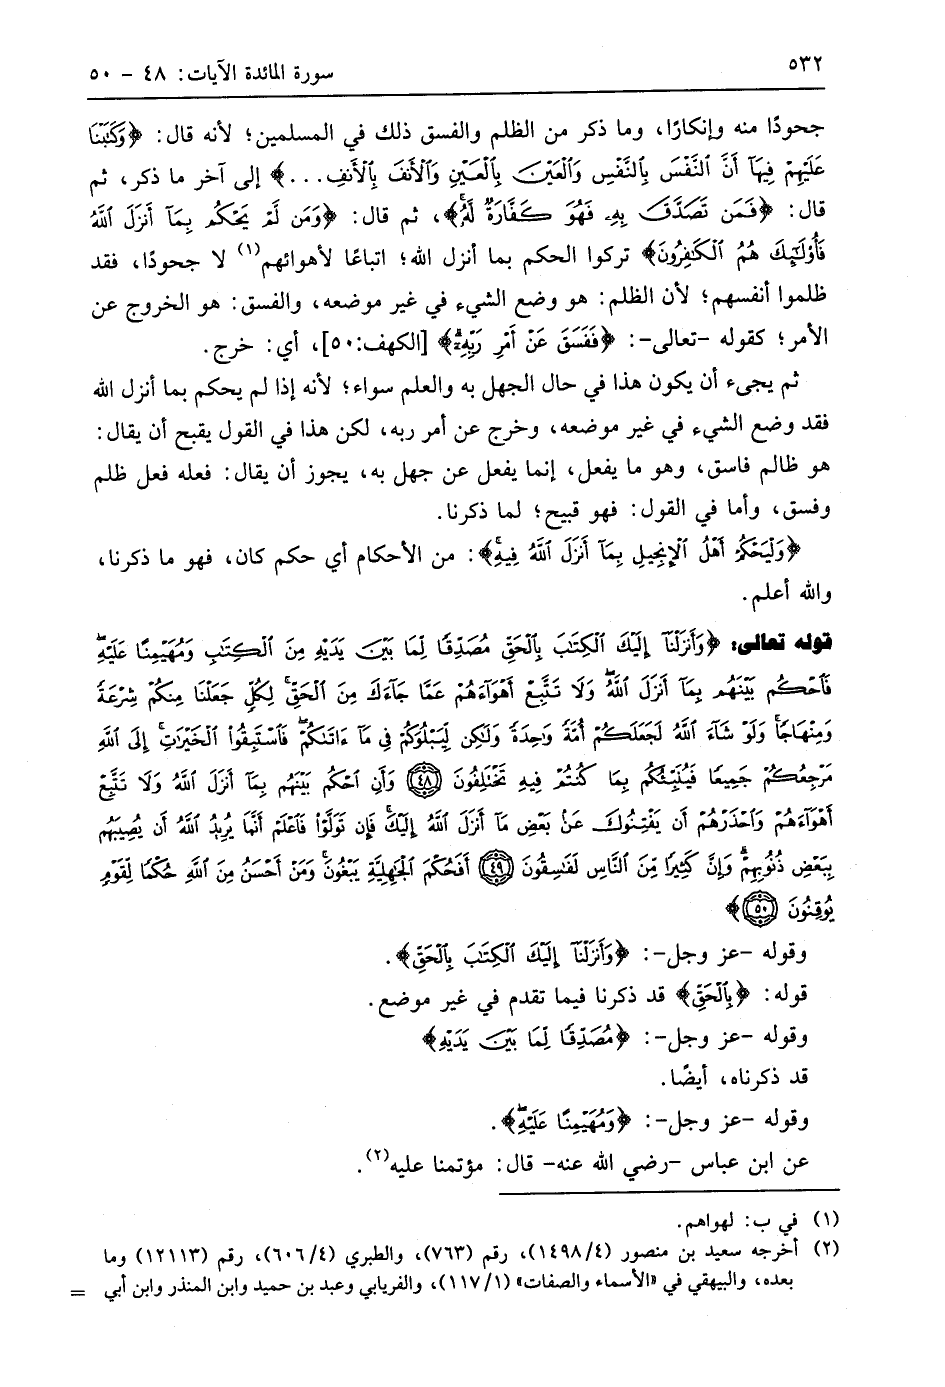 ٥٣٢
سورة المائدة الآيات: ٤٨ - ٥٠
جحودًا منه وإنكارًا، وما ذكر من الظلم والفسق ذلك في المسلمين؛ لأنه قال: ﴿وَكَتَبْنَا
عَلَيْهِمْ فِيهَآ أَنَّ ٱلنَّفْسَ بِٱلنَّفْسِ وَٱلْعَيْنَ بِٱلْعَيْنِ وَٱلْأَنفَ بِٱلْأَنفِ...﴾ إلى آخر ما ذكر، ثم
قال: ﴿فَمَن تَصَدَّقَ بِهِۦ فَهُوَ كَفَّارَةٌ لَّهُۥ﴾، ثم قال: ﴿وَمَن لَّمْ يَحْكُم بِمَآ أَنزَلَ ٱللَّهُ
فَأُوْلَٰٓئِكَ هُمُ ٱلْكَٰفِرُونَ﴾ تركوا الحكم بما أنزل الله؛ اتباعًا لأهوائهم(١) لا جحودًا، فقد
ظلموا أنفسهم؛ لأن الظلم: هو وضع الشيء في غير موضعه، والفسق: هو الخروج عن
الأمر؛ كقوله -تعالى-: ﴿فَفَسَقَ عَنْ أَمْرِ رَبِّهِۦٓ﴾ [الكهف:٥٠]، أي: خرج.
ثم يجيء أن يكون هذا في حال الجهل به والعلم سواء؛ لأنه إذا لم يحكم بما أنزل الله
فقد وضع الشيء في غير موضعه، وخرج عن أمر ربه، لكن هذا في القول يقبح أن يقال:
هو ظالم فاسق، وهو ما يفعل، إنما يفعل عن جهل به، يجوز أن يقال: فعله فعل ظلم
وفسق، وأما في القول: فهو قبيح؛ لما ذكرنا.
﴿وَلْيَحْكُمْ أَهْلُ ٱلْإِنجِيلِ بِمَآ أَنزَلَ ٱللَّهُ فِيهِ﴾: من الأحكام أي حكم كان، فهو ما ذكرنا،
والله أعلم.
قوله تعالى: ﴿وَأَنزَلْنَآ إِلَيْكَ ٱلْكِتَٰبَ بِٱلْحَقِّ مُصَدِّقًا لِّمَا بَيْنَ يَدَيْهِ مِنَ ٱلْكِتَٰبِ وَمُهَيْمِنًا عَلَيْهِ
فَٱحْكُم بَيْنَهُم بِمَآ أَنزَلَ ٱللَّهُ وَلَا تَتَّبِعْ أَهْوَآءَهُمْ عَمَّا جَآءَكَ مِنَ ٱلْحَقِّ لِكُلٍّ جَعَلْنَا مِنكُمْ شِرْعَةً
وَمِنْهَاجًا وَلَوْ شَآءَ ٱللَّهُ لَجَعَلَكُمْ أُمَّةً وَٰحِدَةً وَلَٰكِن لِّيَبْلُوَكُمْ فِى مَآ ءَاتَىٰكُمْ فَٱسْتَبِقُوا۟ ٱلْخَيْرَٰتِ إِلَى ٱللَّهِ
مَرْجِعُكُمْ جَمِيعًا فَيُنَبِّئُكُم بِمَا كُنتُمْ فِيهِ تَخْتَلِفُونَ ٤٨ وَأَنِ ٱحْكُم بَيْنَهُم بِمَآ أَنزَلَ ٱللَّهُ وَلَا تَتَّبِعْ
أَهْوَآءَهُمْ وَٱحْذَرْهُمْ أَن يَفْتِنُوكَ عَنۢ بَعْضِ مَآ أَنزَلَ ٱللَّهُ إِلَيْكَ فَإِن تَوَلَّوْا۟ فَٱعْلَمْ أَنَّمَا يُرِيدُ ٱللَّهُ أَن يُصِيبَهُم
بِبَعْضِ ذُنُوبِهِمْ وَإِنَّ كَثِيرًا مِّنَ ٱلنَّاسِ لَفَٰسِقُونَ ٤٩ أَفَحُكْمَ ٱلْجَٰهِلِيَّةِ يَبْغُونَ وَمَنْ أَحْسَنُ مِنَ ٱللَّهِ حُكْمًا لِّقَوْمٍ
يُوقِنُونَ ٥٠﴾
وقوله -عز وجل-: ﴿وَأَنزَلْنَآ إِلَيْكَ ٱلْكِتَٰبَ بِٱلْحَقِّ﴾.
قوله: ﴿بِٱلْحَقِّ﴾ قد ذكرنا فيما تقدم في غير موضع.
وقوله -عز وجل-: ﴿مُصَدِّقًا لِّمَا بَيْنَ يَدَيْهِ﴾
قد ذكرناه، أيضًا.
وقوله -عز وجل-: ﴿وَمُهَيْمِنًا عَلَيْهِ﴾.
عن ابن عباس -رضي الله عنه- قال: مؤتمنا عليه(٢).
(١) في ب: لهواهم.
(٢) أخرجه سعيد بن منصور (١٤٩٨/٤)، رقم (٧٦٣)، والطبري (٦٠٦/٤)، رقم (١٢١١٣) وما
بعده، والبيهقي في «الأسماء والصفات» (١١٧/١)، والفريابي وعبد بن حميد وابن المنذر وابن أبي =